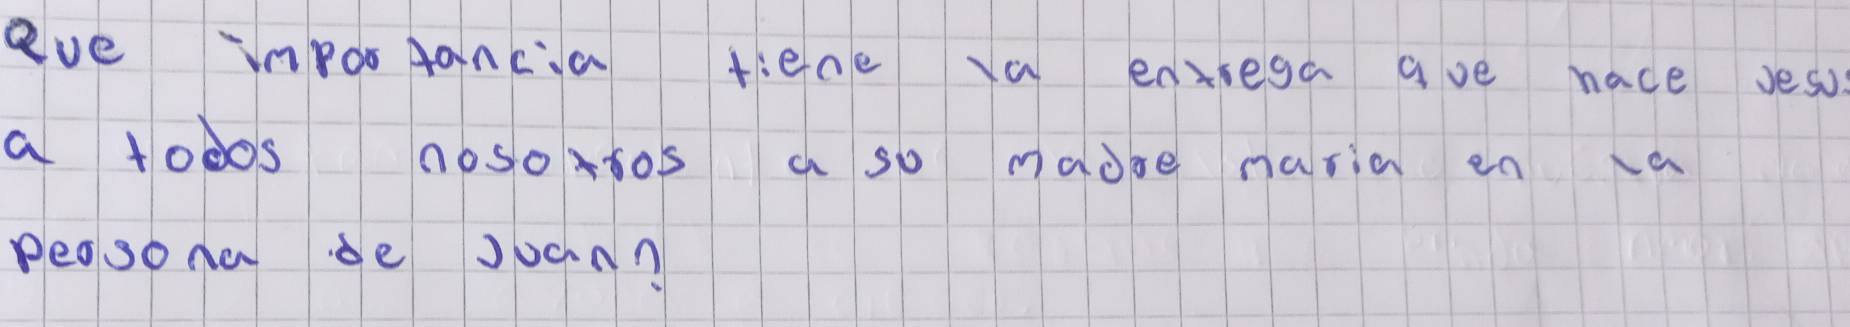 Que importancia tiene la entrega que hace Jesus
a todos nosotros a su madre maria en la
persona de Juan?